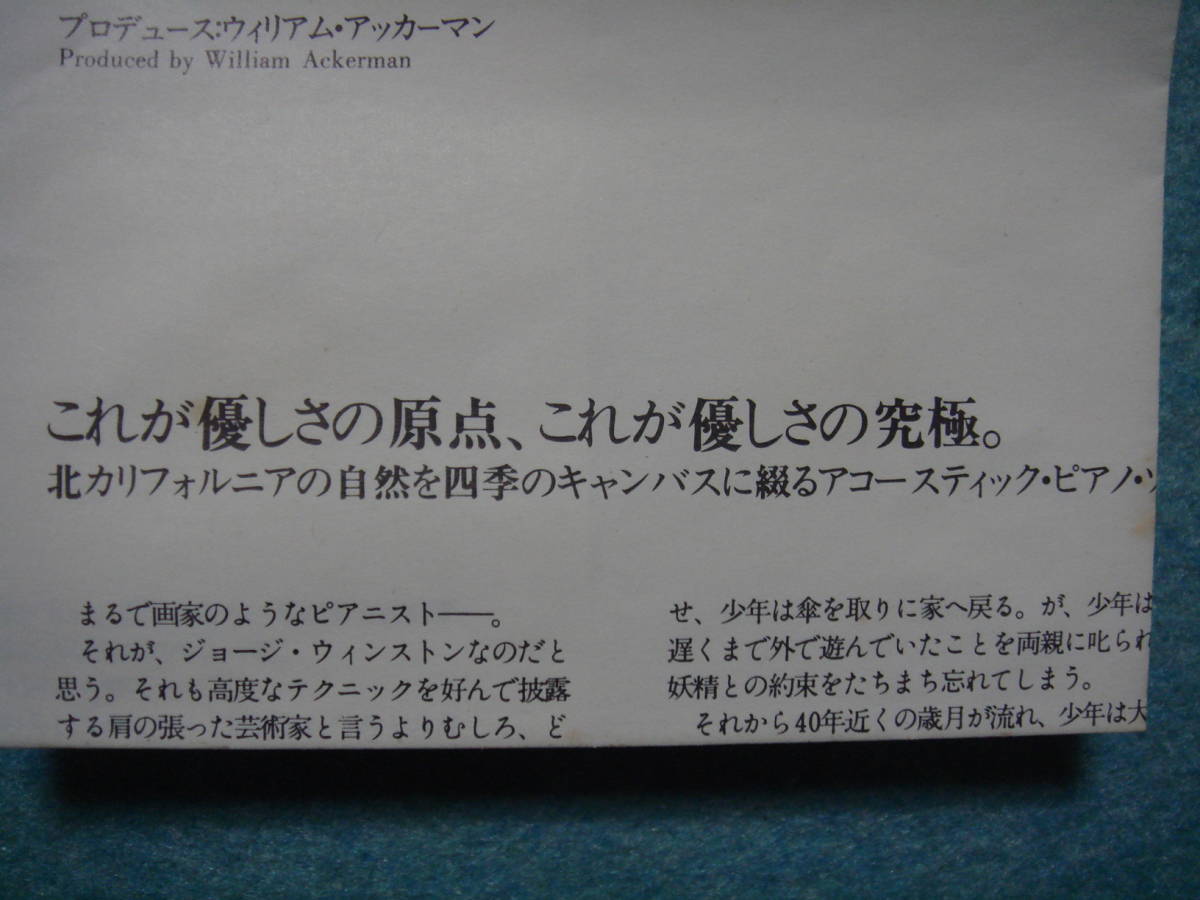 プロデュース:ウィリアム・アッカーマン
Produced by William Ackerman
これが優しさの原点、これが優しさの究極。
北カリフォルニアの自然を四季のキャンバスに綴るアコースティック・ピアノ・ソ
まるで画家のようなピアニスト——。
それが、ジョージ・ウィンストンなのだと
思う。それも高度なテクニックを好んで披露
する肩の張った芸術家と言うよりむしろ、ど
せ、少年は傘を取りに家へ戻る。が、少年は
遅くまで外で遊んでいたことを両親に叱られ
妖精との約束をたちまち忘れてしまう。
それから40年近くの歳月が流れ、少年は大